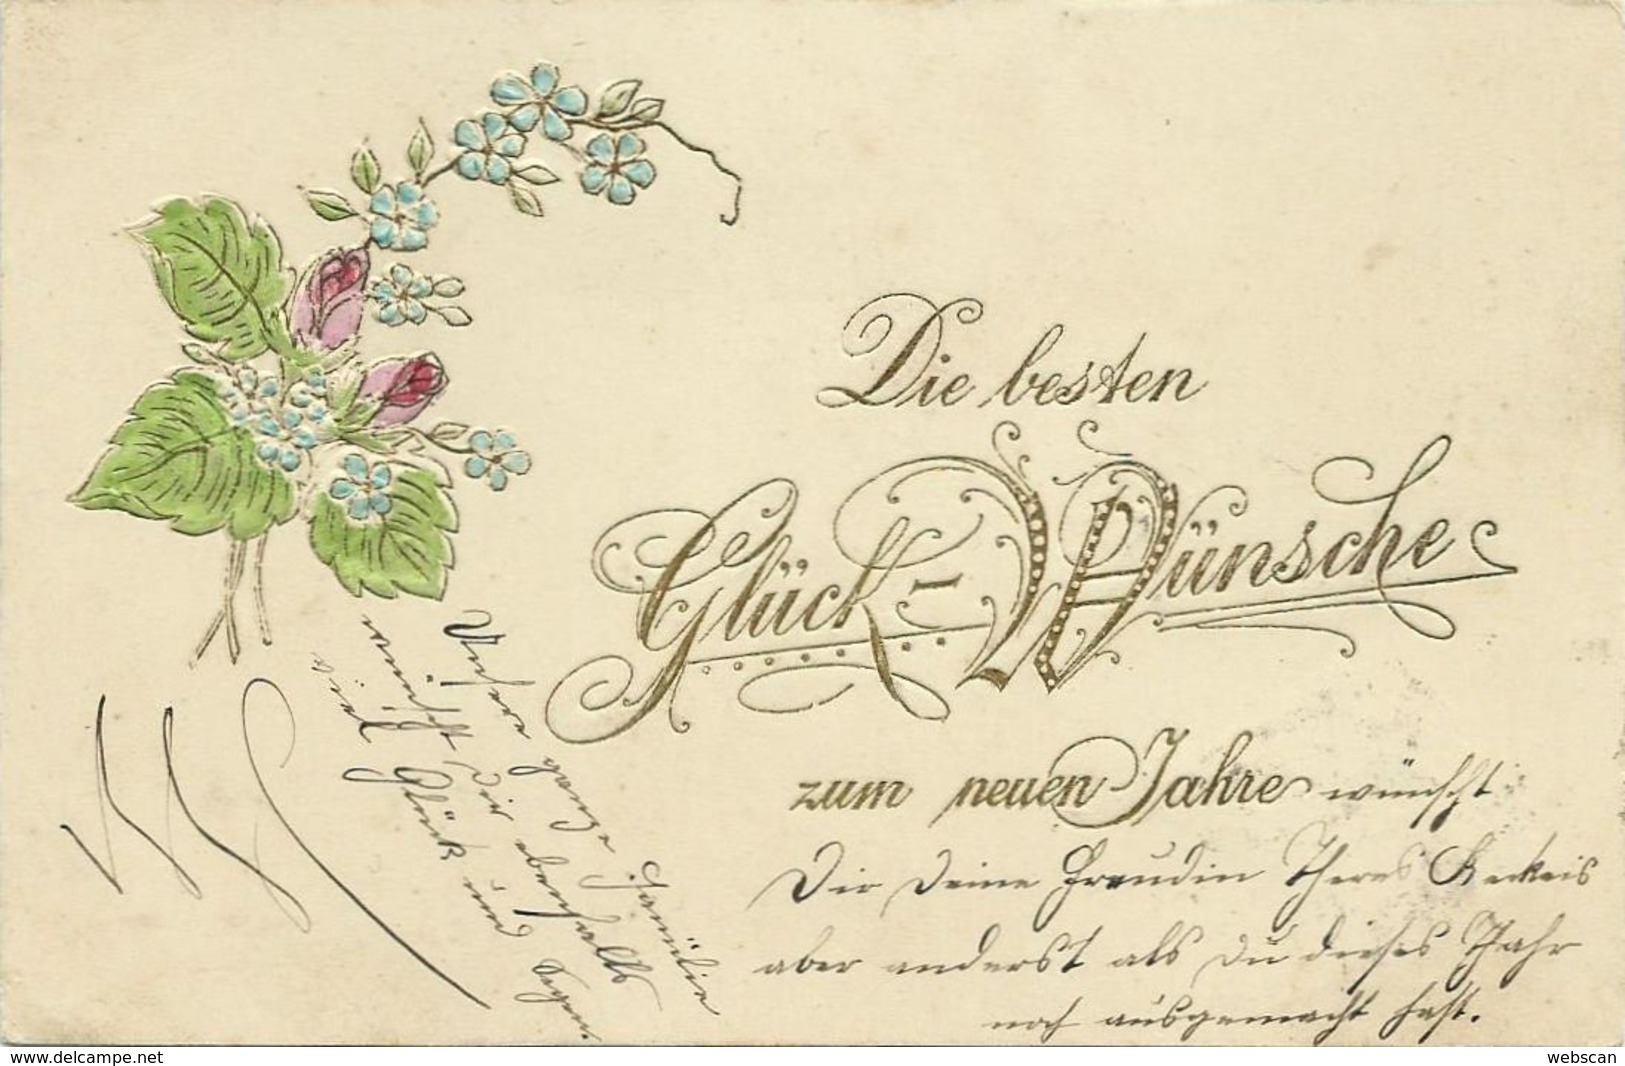 Die besten
Glück-Wünsche
zum neuen Jahre wünscht
Dir Deine Freundin Theres
aber anderst als Du dieses Jahr
noch ausgemacht hast.
Unsere ganze Familie
wünscht Dir ebenfalls
viel Glück und Segen.
www.delcampe.net
webscan